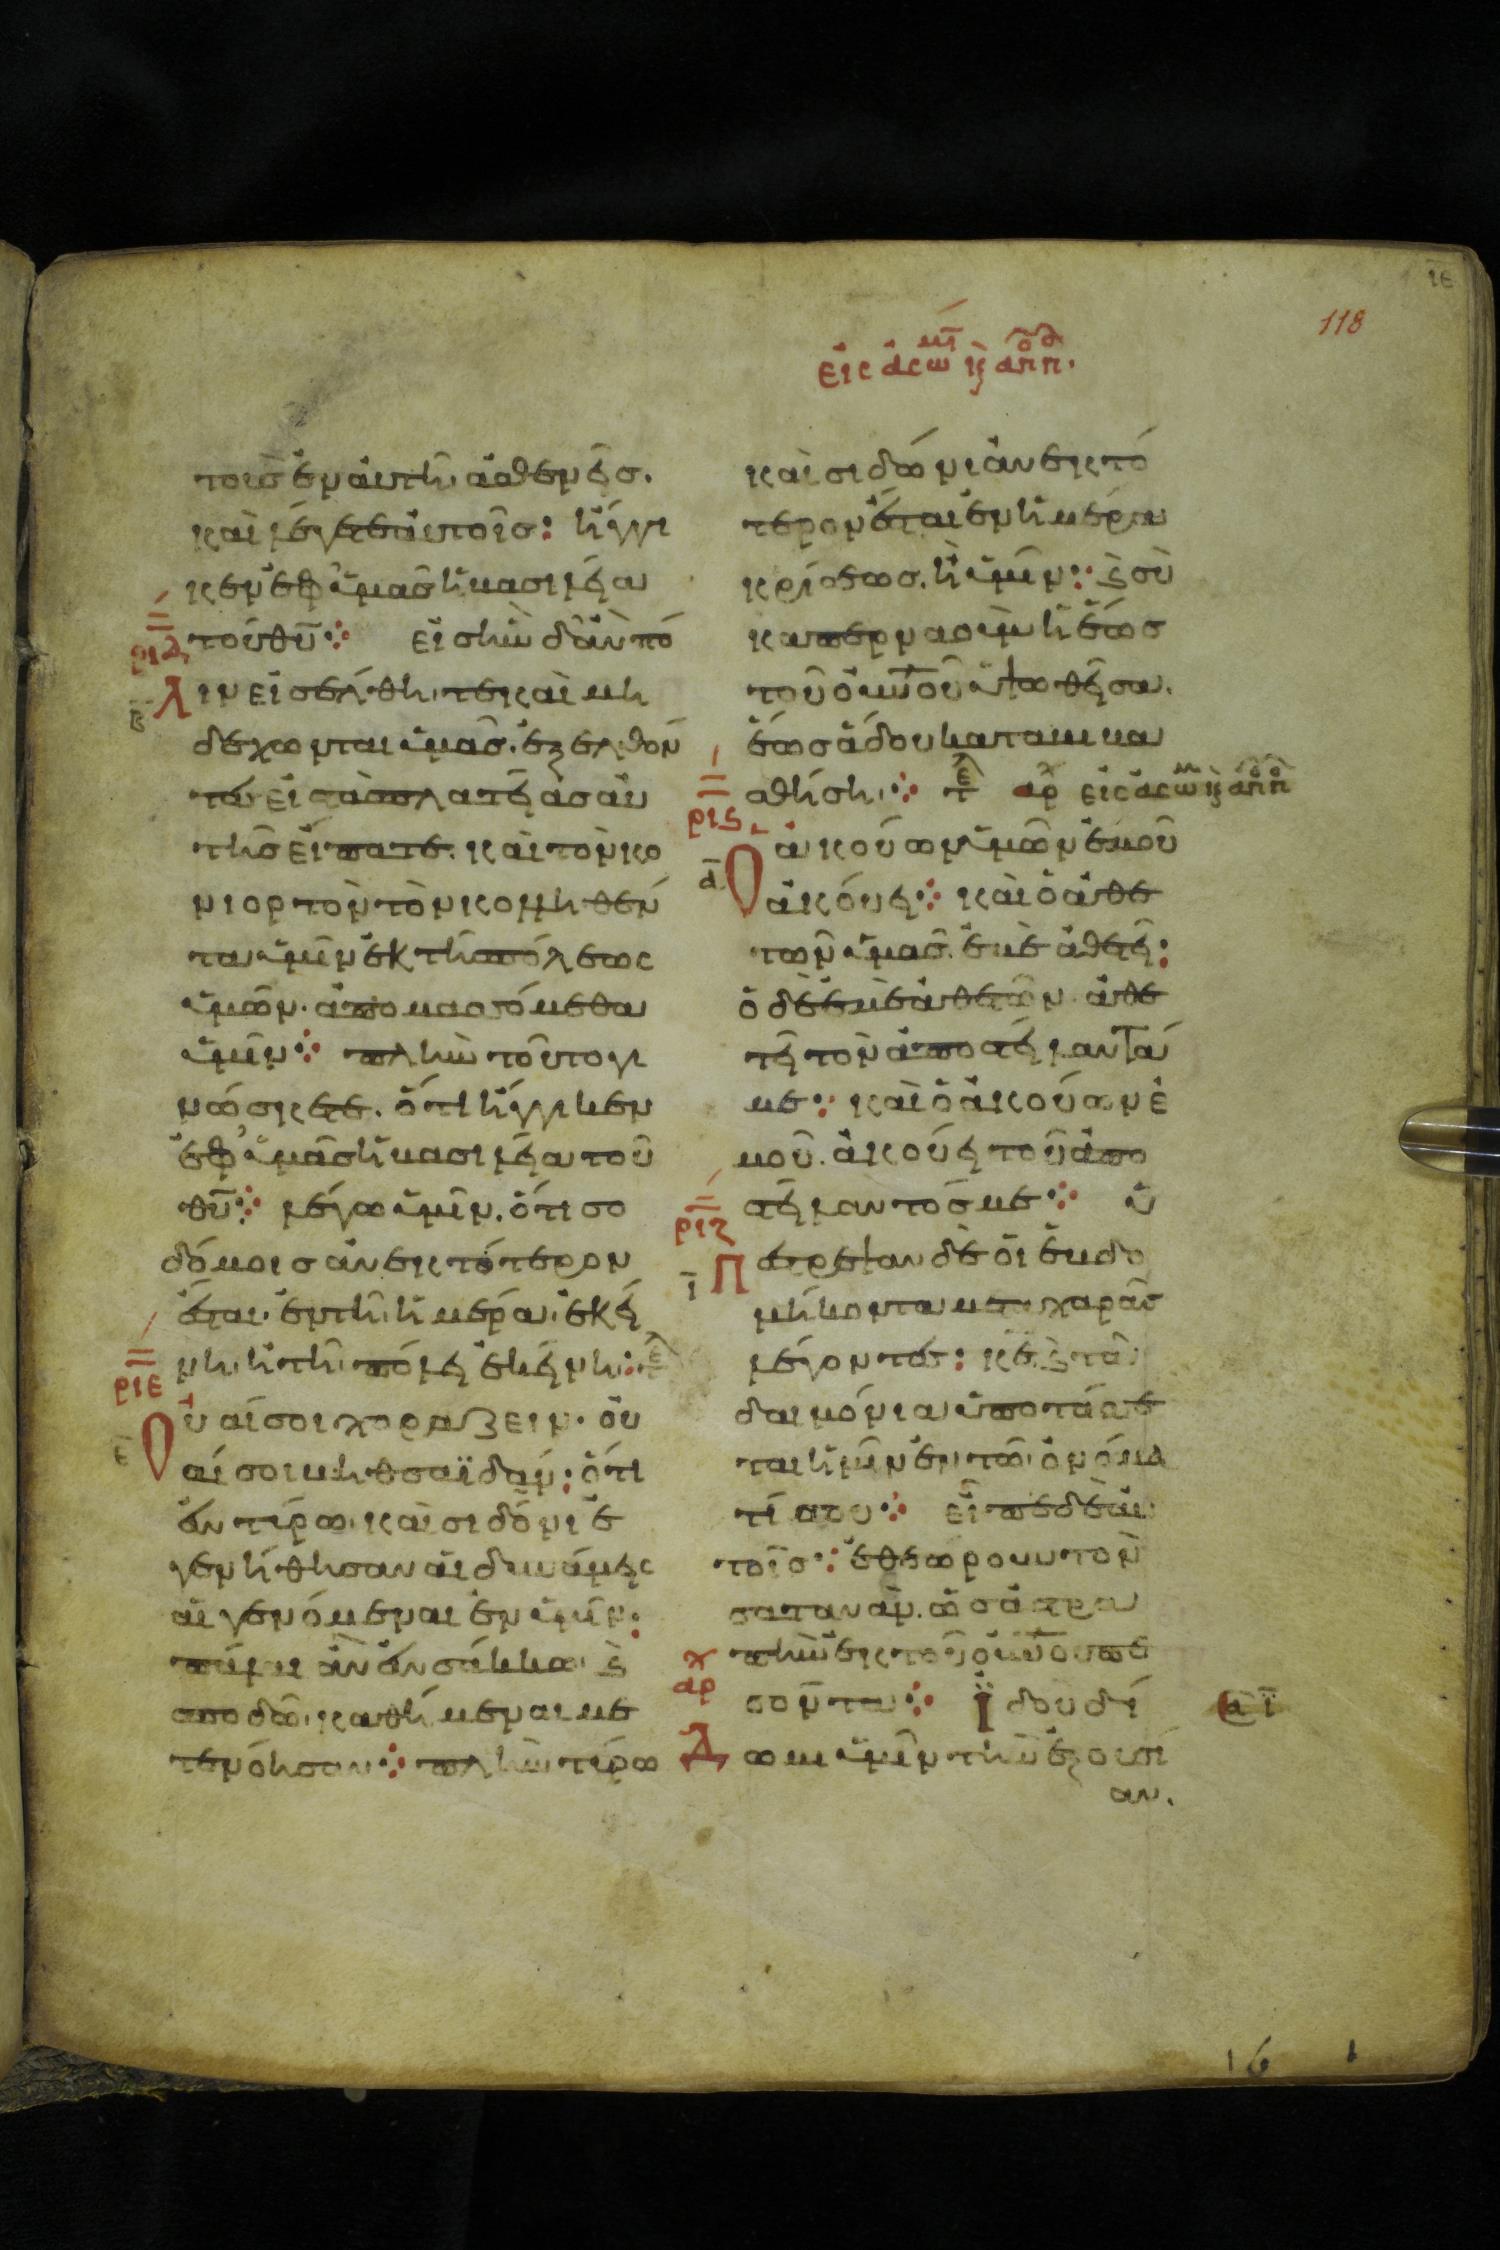 ιε
118
εἰς ἀσω κ ἀπ π.
τοὺσ ἐν αὐτῆ ἀσθενεῖσ.
καὶ λέγετε αὐτοῖσ: ἤγγι
κεν ἐφ' ὑμᾶσ ἡ βασιλεία
ριδ τοῦ θυ εἰσ ἣν δ' ἂν πό
λιν εἰσέλθητε καὶ μὴ
δέχωνται ὑμᾶσ. ἐξελθόν
τεσ εἰσ τὰσ πλατείασ αὐ
τῆσ εἴπατε. καὶ τὸν κο
νιορτὸν τὸν κολληθέν
τα ὑμῖν ἐκ τῆσ πόλεως
ὑμῶν. ἀπομασσόμεθα
ὑμῖν πλὴν τοῦτο γι
νώσκετε. ὅτι ἤγγικεν
ἐφ' ὑμᾶσ ἡ βασιλεία τοῦ
θυ λέγω ὑμῖν. ὅτι σο
δόμοισ ἀνεκτότερον
ἔσται ἐν τῆ ἡμέρα ἐκεί
νη. ἢ τῆ πόλει ἐκείνη: τε
ριε
Οὐαί σοι χοραζειν. οὐ
αί σοι βηθσαϊδάν: ὅτι
ἐν τύρω καὶ σιδόνι ἐ
γενήθησαν αἱ δυνάμεις
αἱ γενόμεναι ἐν ὑμῖν:
πάλαι ἂν ἐν σάκκω ϗ
σποδῶ καθήμεναι με
τενόησαν πλὴν τύρω
καὶ σιδώνι ἀνεκτό
τερον ἔσται ἐν ἡμέρα
κρίσεωσ. ἢ ὑμῖν: ϗ σὺ
καπερναοὺμ ἡ ἕωσ
τοῦ οὐνοῦ ὑψωθεῖσα.
ἕωσ ἅδου καταβιβα
σθήση. τε αρ εἰς ἀσω κ ἀπ π
ρις
Ὁ ἀκούων ὑμῶν ἐμοῦ
ἀκούει καὶ ὁ ἀθε
τῶν ὑμᾶσ. ἐμὲ ἀθετεῖ:
ὁ δὲ ἐμὲ ἀθετῶν. ἀθε
τεῖ τὸν ἀποστείλαντά
με: καὶ ὁ ἀκούων ἐ
μοῦ. ἀκούει τοῦ ἀπο
στείλαντοσ με ὑ
ριζ
Πέστρεψαν δὲ οἱ ἑβδο
μήκοντα μετα χαρᾶσ
λέγοντεσ: κε ϗ τὰ
δαιμόνια ὑποτάσσε
ται ἡμῖν ἐν τῶ ὀνόμα
τί σου εἶπε δὲ αὐ
τοῖσ: ἐθεώρουν τὸν
σαταναν. ὡσ ἀστρα
πὴν ἐκ τοῦ οὐνοῦ πε
αρ σόντα Ἰδοὺ δί
Δ ωμι ὑμῖν τὴν ἐξουσί
αν.
16 1